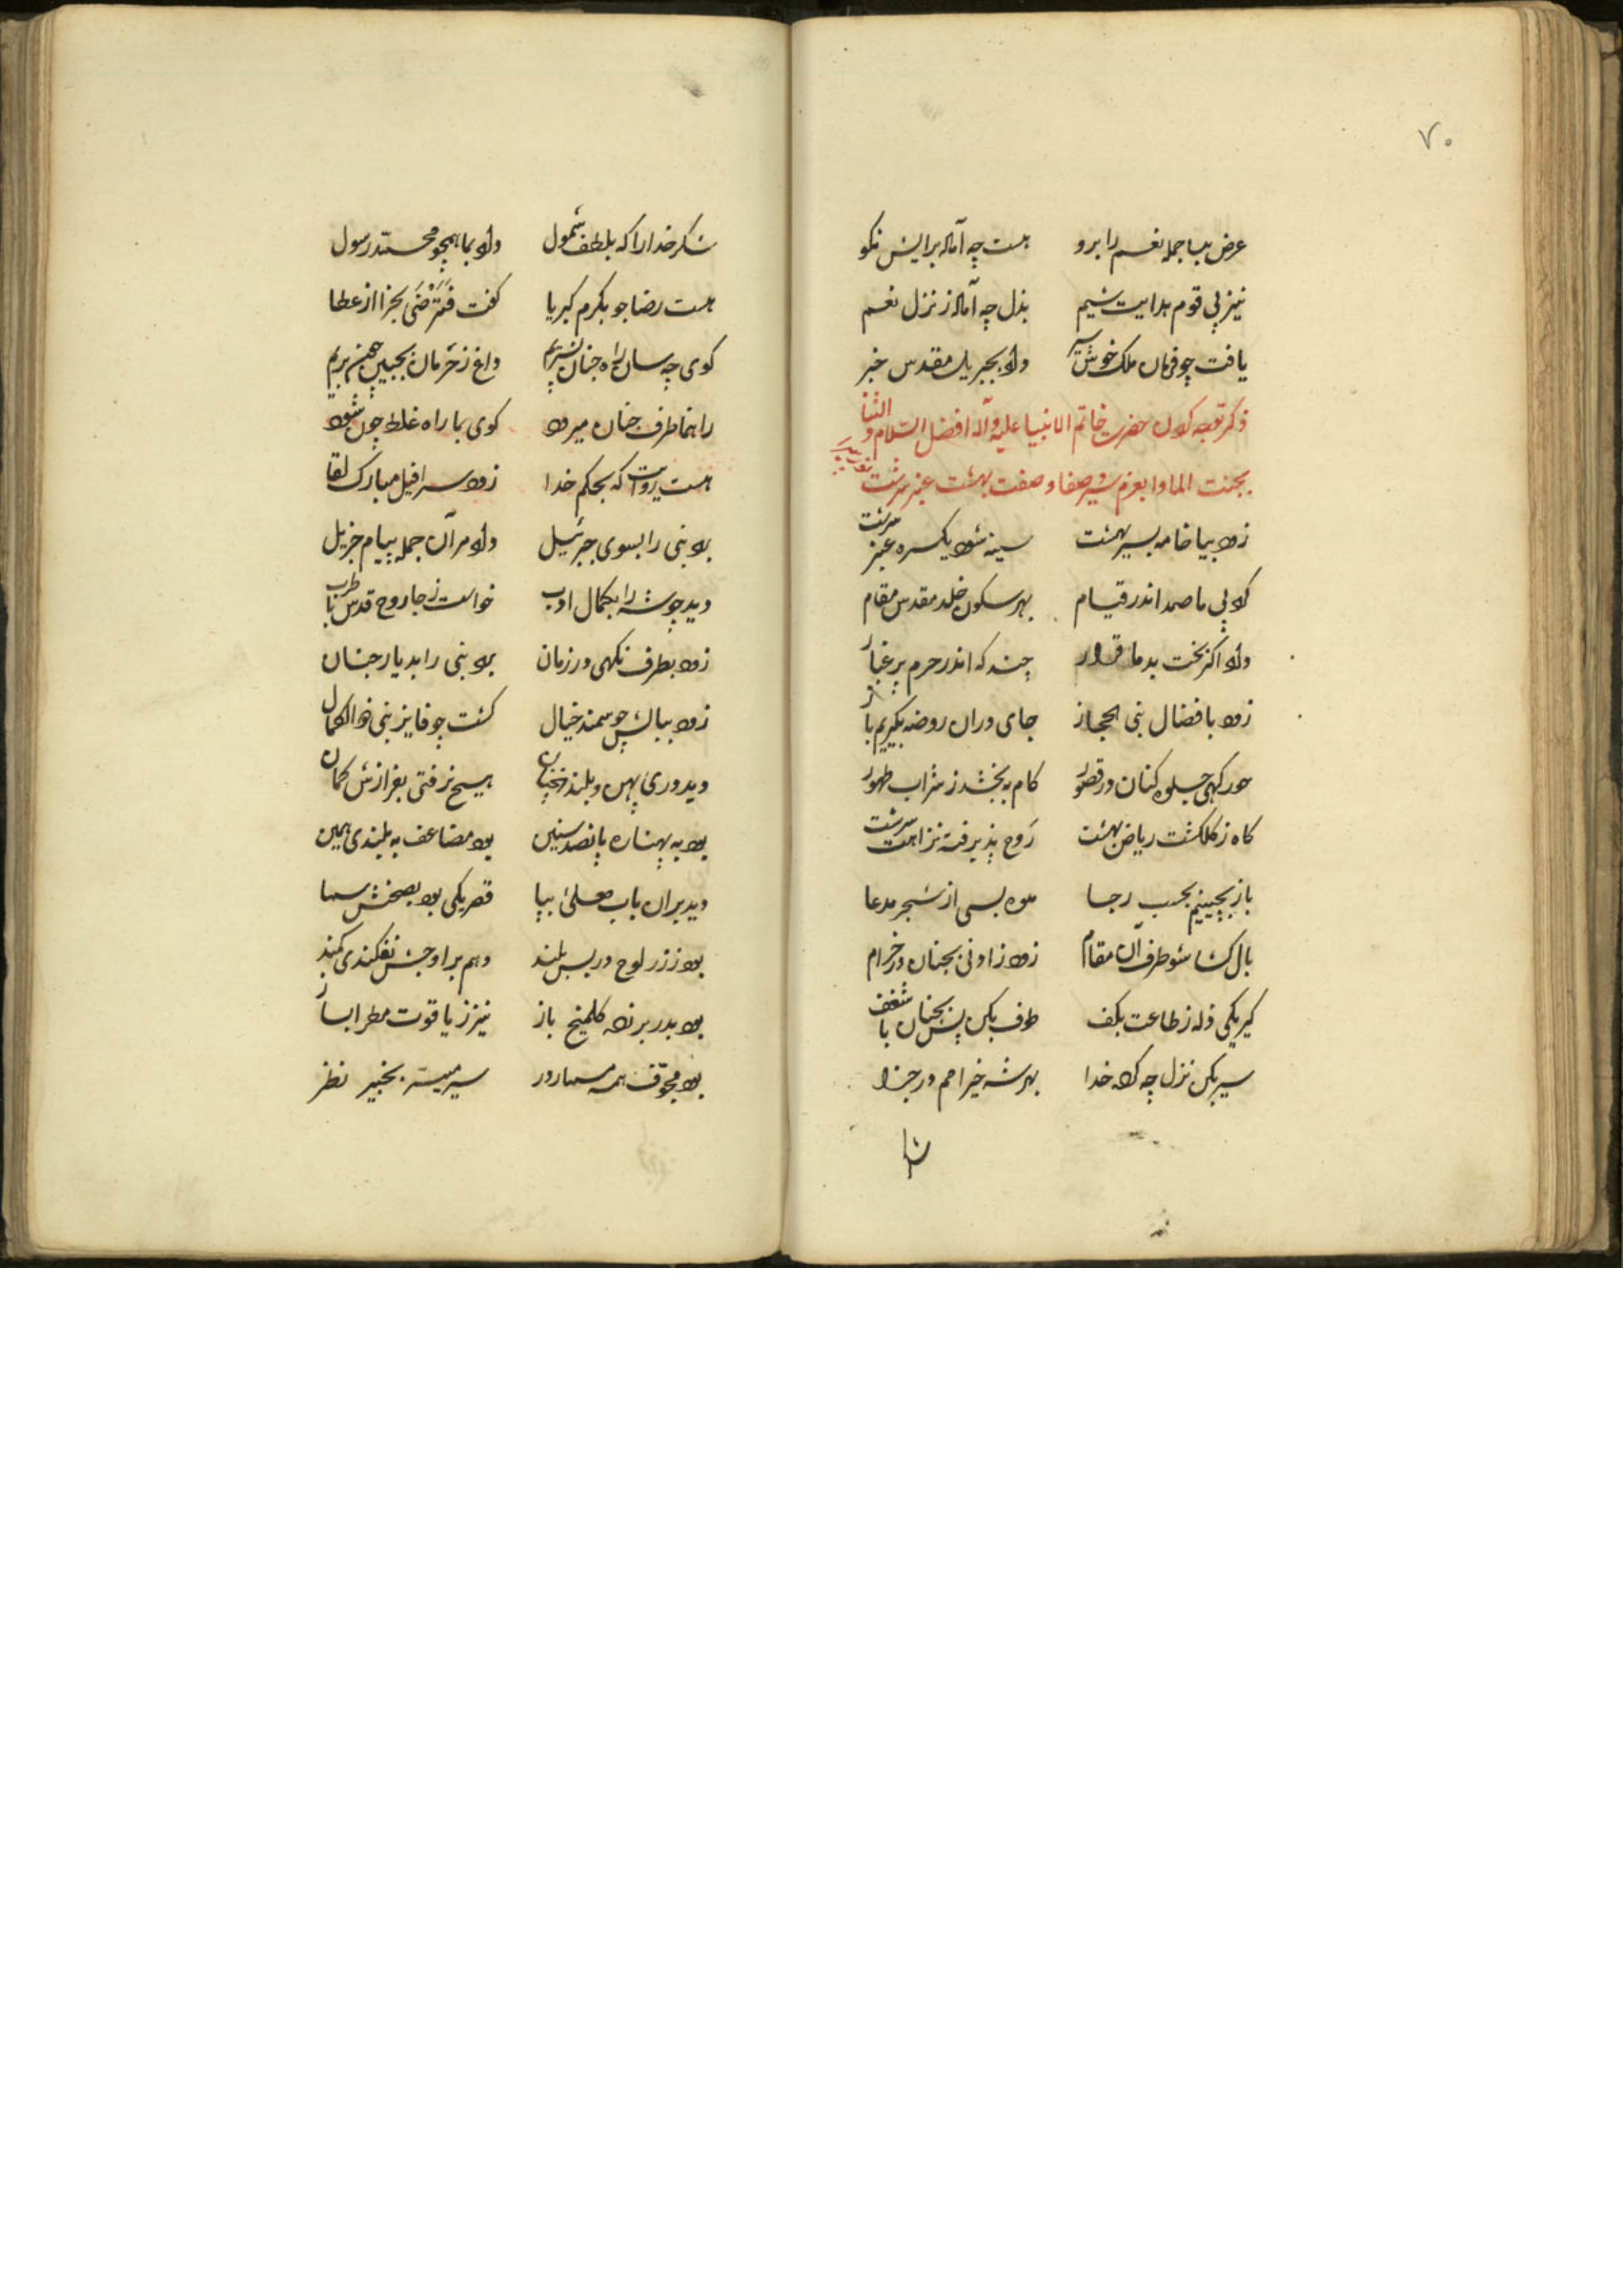 ۷۰
عرض بسا جمله نعم را برو هست چه آماده برایش نکو
نیز پی قوم هدایت شیم بذل چه آماده ز نزل نعم
یافت چو فرمان ملک خوش سیر داد بجبریل مقدس خبر
ذکر توجه کردن حضرت خاتم الانبیا علیه و آله افضل السلام و الثنا
بجنت الماوا بعزم سیر صفا و صفت بهشت عنبر سرشت
زود بیا خامه بسیر بهشت سینه شود یکسره عنبر سرشت
کرد پی ما صمد اندر قیام بهر سکون خلد مقدس مقام
داد اگر بخت بد ما قرار چند که اندر حرم پر غبار
زود بافضال نبی الحجاز جای دران روضه بگیریم باز
حور گهی جلوه کنان در قصور کام به بخشد ز شراب طهور
گاه ز گلگشت ریاض بهشت روح پذیرفته نزاهت سرشت
باز بچینیم بحسب رجا میوه بسی از شجر مدعا
بال کشا شو طرف آن مقام زود ز ادنی بجنان در خرام
گیر یکی زاد ز طاعت بکف طوف بکن پس بجنان با شغف
سیر بکن نزل چه کرد خدا بهر شه خیر امم در جزا
شا
شکر خدا را که بلطف شمول داد بما همچو محمد رسول
هست رضا جو بکرم کبریا گفت فترضی بجزا از عطا
گوی چه سان راه جنان نسپریم داغ ز خرمان بجبین چون بریم
راهنما طرف جنان میرود گوی بما راه غلط چون شود
هست روایت که بحکم خدا زود سرافیل مبارک لقا
برد نبی را بسوی جبرئیل داد مر آن جمله پیام جزیل
دید چو شه را بکمال ادب خواست ز جا روح قدس با طرب
زود بطرف نگهی در زمان برد نبی را بدیار جنان
زود ببابش چو سمند خیال گشت چو فایز نبی ذو الکمال
دید دری پهن و بلند هیچ نرفتی بفرازش گمان
بود به پهنا ره پانصد سنین بود مضاعف به بلندی همین
دید بران باب معلی بپا قصر یکی بود بصحنش سما
بود ز زر لوح در بس بلند وهم بر اوجش نفکندی کمند
بود بدر بر زده گلمیخ باز نیز ز یاقوت مطرا بساز
بود مجوف همه مسمار در سیر میسر بخبیر نظر